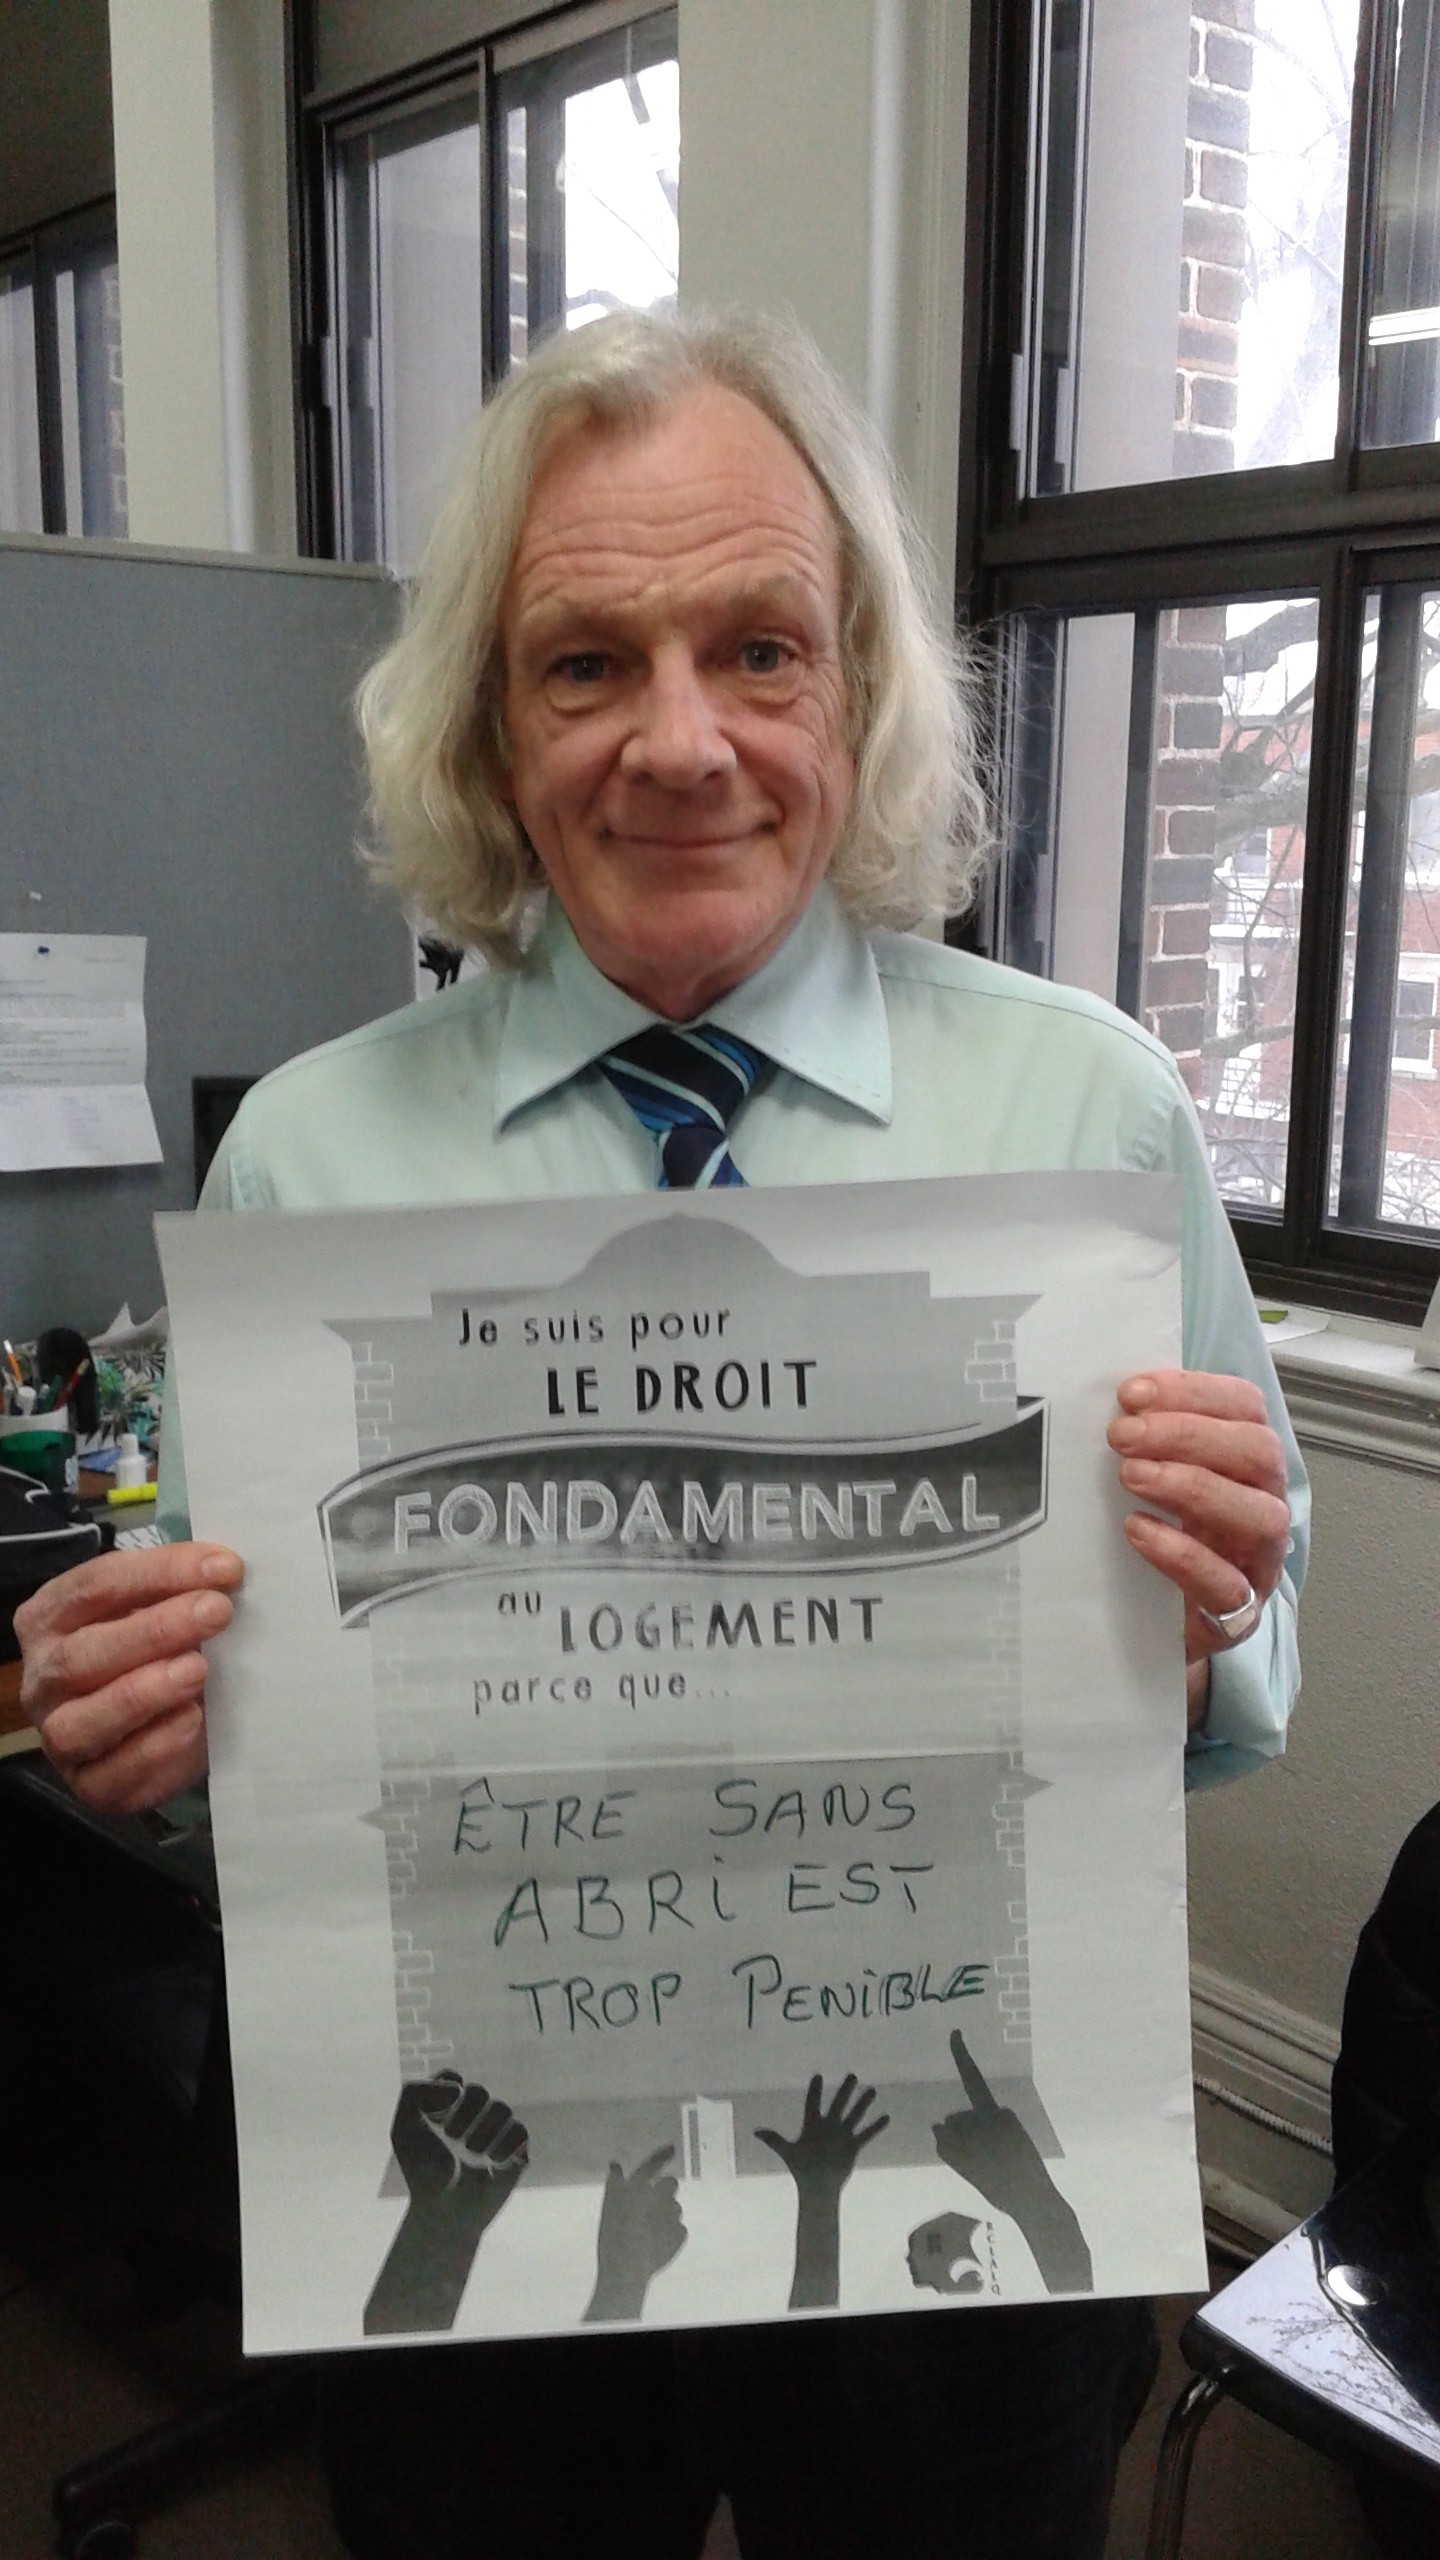 Je suis pour
LE DROIT
FONDAMENTAL
au LOGEMENT
parce que...
ÊTRE SANS
ABRi EST
TROP PENiBLE
RCLALQ